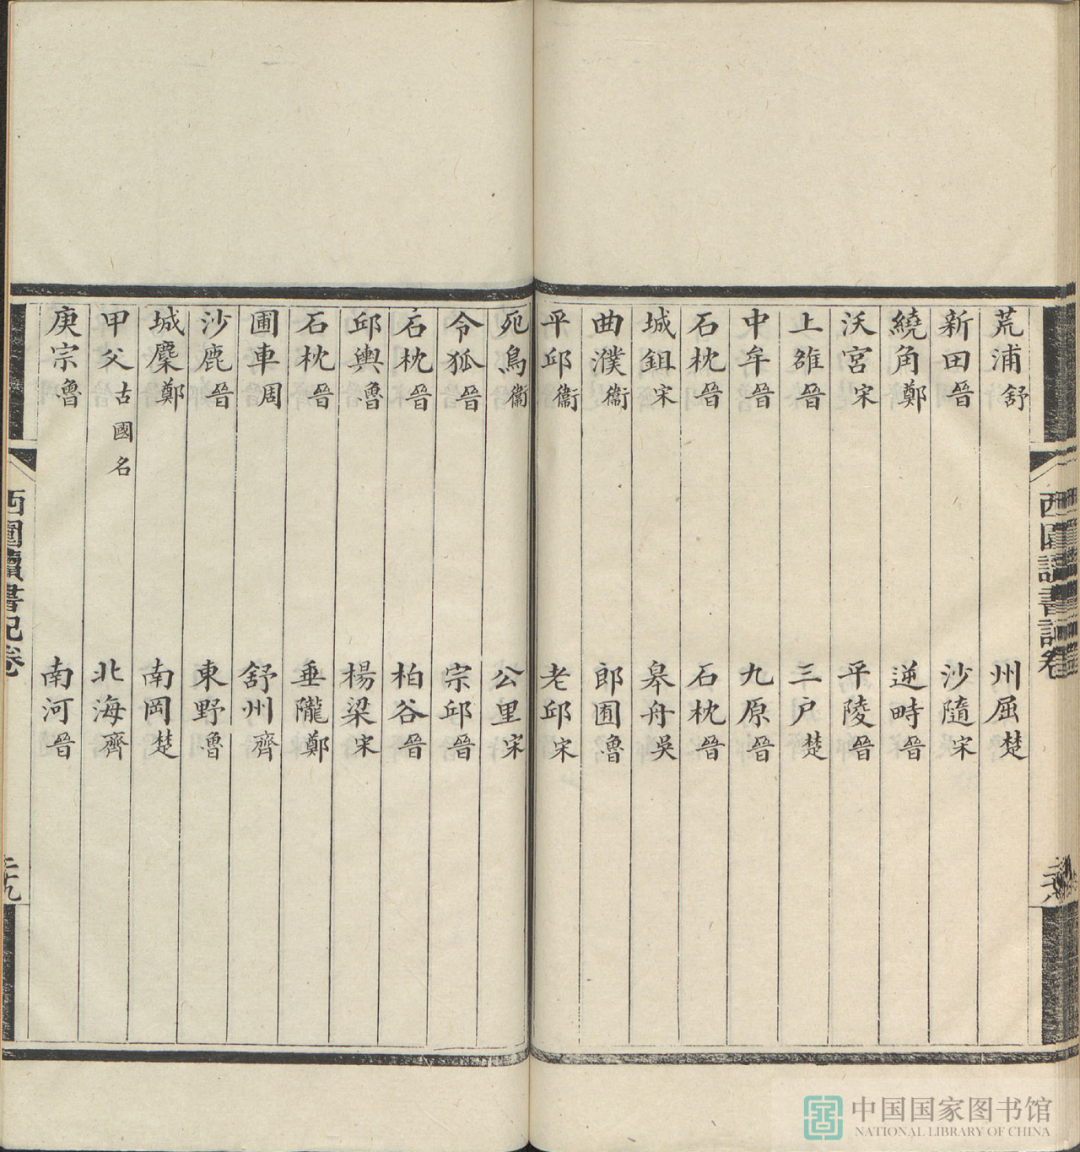 荒浦舒 州屈楚
新田晉 沙隨宋
繞角鄭 逆畤晉
沃宮宋 平陵晉
上雒晉 三户楚
中牟晉 九原晉
石枕晉 石枕晉
城鉏宋 皋舟吳
曲濮衞 郎囿魯
平邱衞 老邱宋
西圃讀書記卷
二十八
宛鳥衞 公里宋
令狐晉 宗邱晉
石枕晉 柏谷晉
邱輿魯 楊梁宋
石枕晉 垂隴鄭
圃車周 舒州齊
沙鹿晉 東野魯
城麇鄭 南岡楚
甲父古國名 北海齊
庚宗魯 南河晉
西圃讀書記卷
二十九
中国国家图书馆
NATIONAL LIBRARY OF CHINA